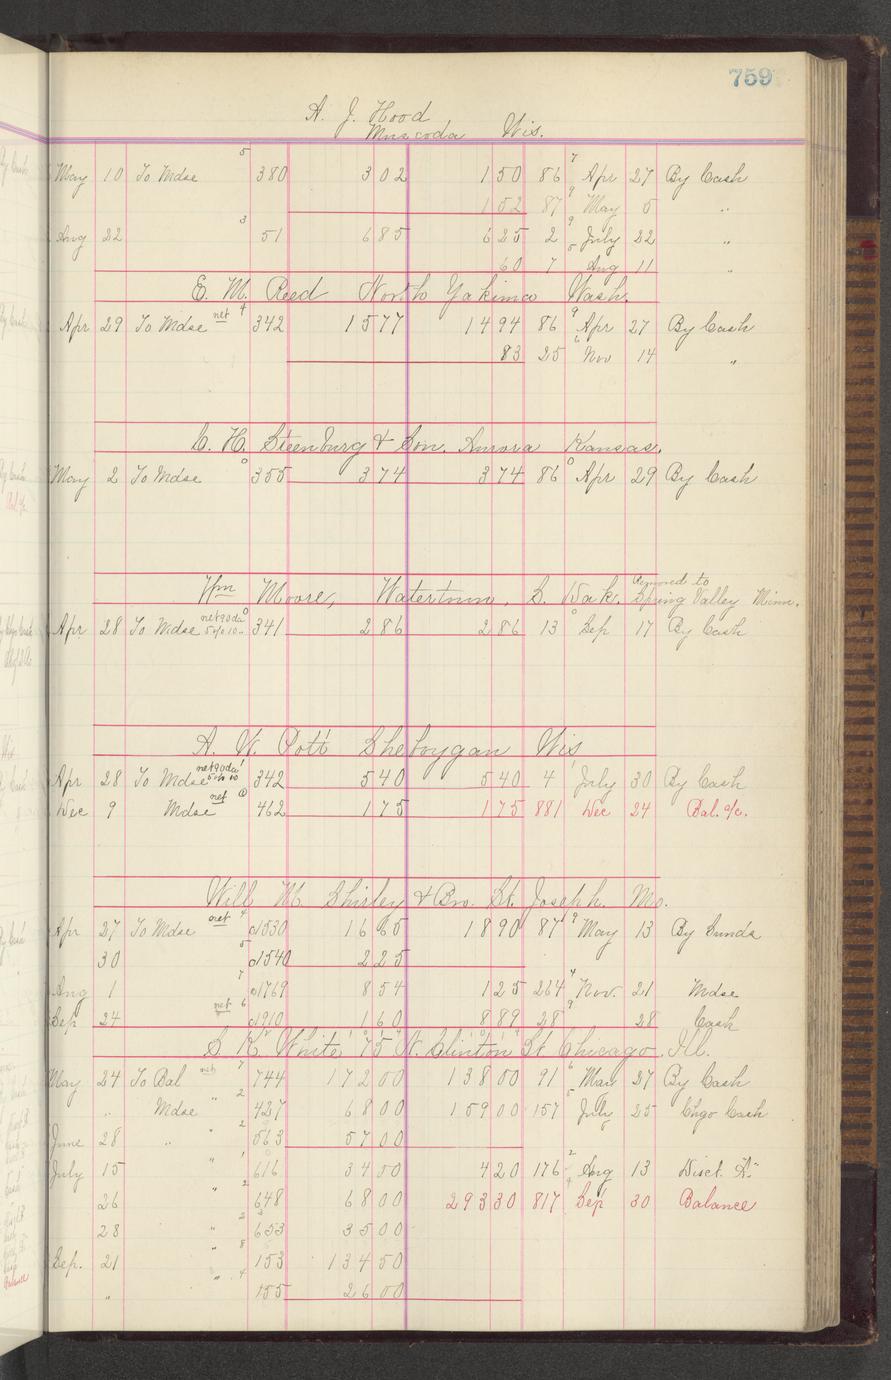 759
A. J. Hood
Muscoda Wis.
May 10 To Mdse 5 380 3 02 1 50 86 7 Apr 27 By Cash
1 52 87 9 May 5 "
Aug 22 3 51 6 85 6 25 2 9 July 22 "
60 7 5 Aug 11 "
E. M. Reed North Yakima Wash.
Apr 29 To Mdse net 4 342 15 77 14 94 86 9 Apr 27 By Cash
83 25 6 Nov 14 "
C. H. Steenburg & Son. Aurora Kansas.
May 2 To Mdse 0 355 3 74 3 74 86 0 Apr 29 By Cash
Removed to
Wm Moore, Watertown, S. Dak. Spring Valley Minn.
net 90 da 0
Apr 28 To Mdse 5 % 10 " 341 2 86 2 86 13 0 Sep 17 By Cash
A. W. Pott Sheboygan Wis
net 90 da 1
Apr 28 To Mdse 5 % 10 342 5 40 5 40 4 1 July 30 By Cash
Dec 9 Mdse net 462 1 75 1 75 881 Dec 24 Bal. a/c.
Will M. Shirley & Bro. St. Joseph. Mo.
Apr 27 To Mdse net 4 1530 16 65 18 90 87 9 May 13 By Sunds
30 5 1540 2 25
Aug 1 7 1769 8 54 1 25 264 4 Nov. 21 Mdse
Sep 24 net 6 1910 1 60 8 89 28 9 28 Cash
S. K. White 75 N. Clinton St Chicago. Ill.
May 24 To Bal net 7 744 172 00 138 00 91 6 May 27 By Cash
" Mdse " 2 427 68 00 159 00 157 5 July 25 Chgo Cash
June 28 " " 2 563 57 00
July 15 " 1 616 34 00 4 20 176 2 Aug 13 Disct. A"
26 " 2 648 68 00 293 30 817 4 Sep 30 Balance
28 " 2 653 35 00
Sep. 21 " 8 153 134 50
" " 4 155 26 00